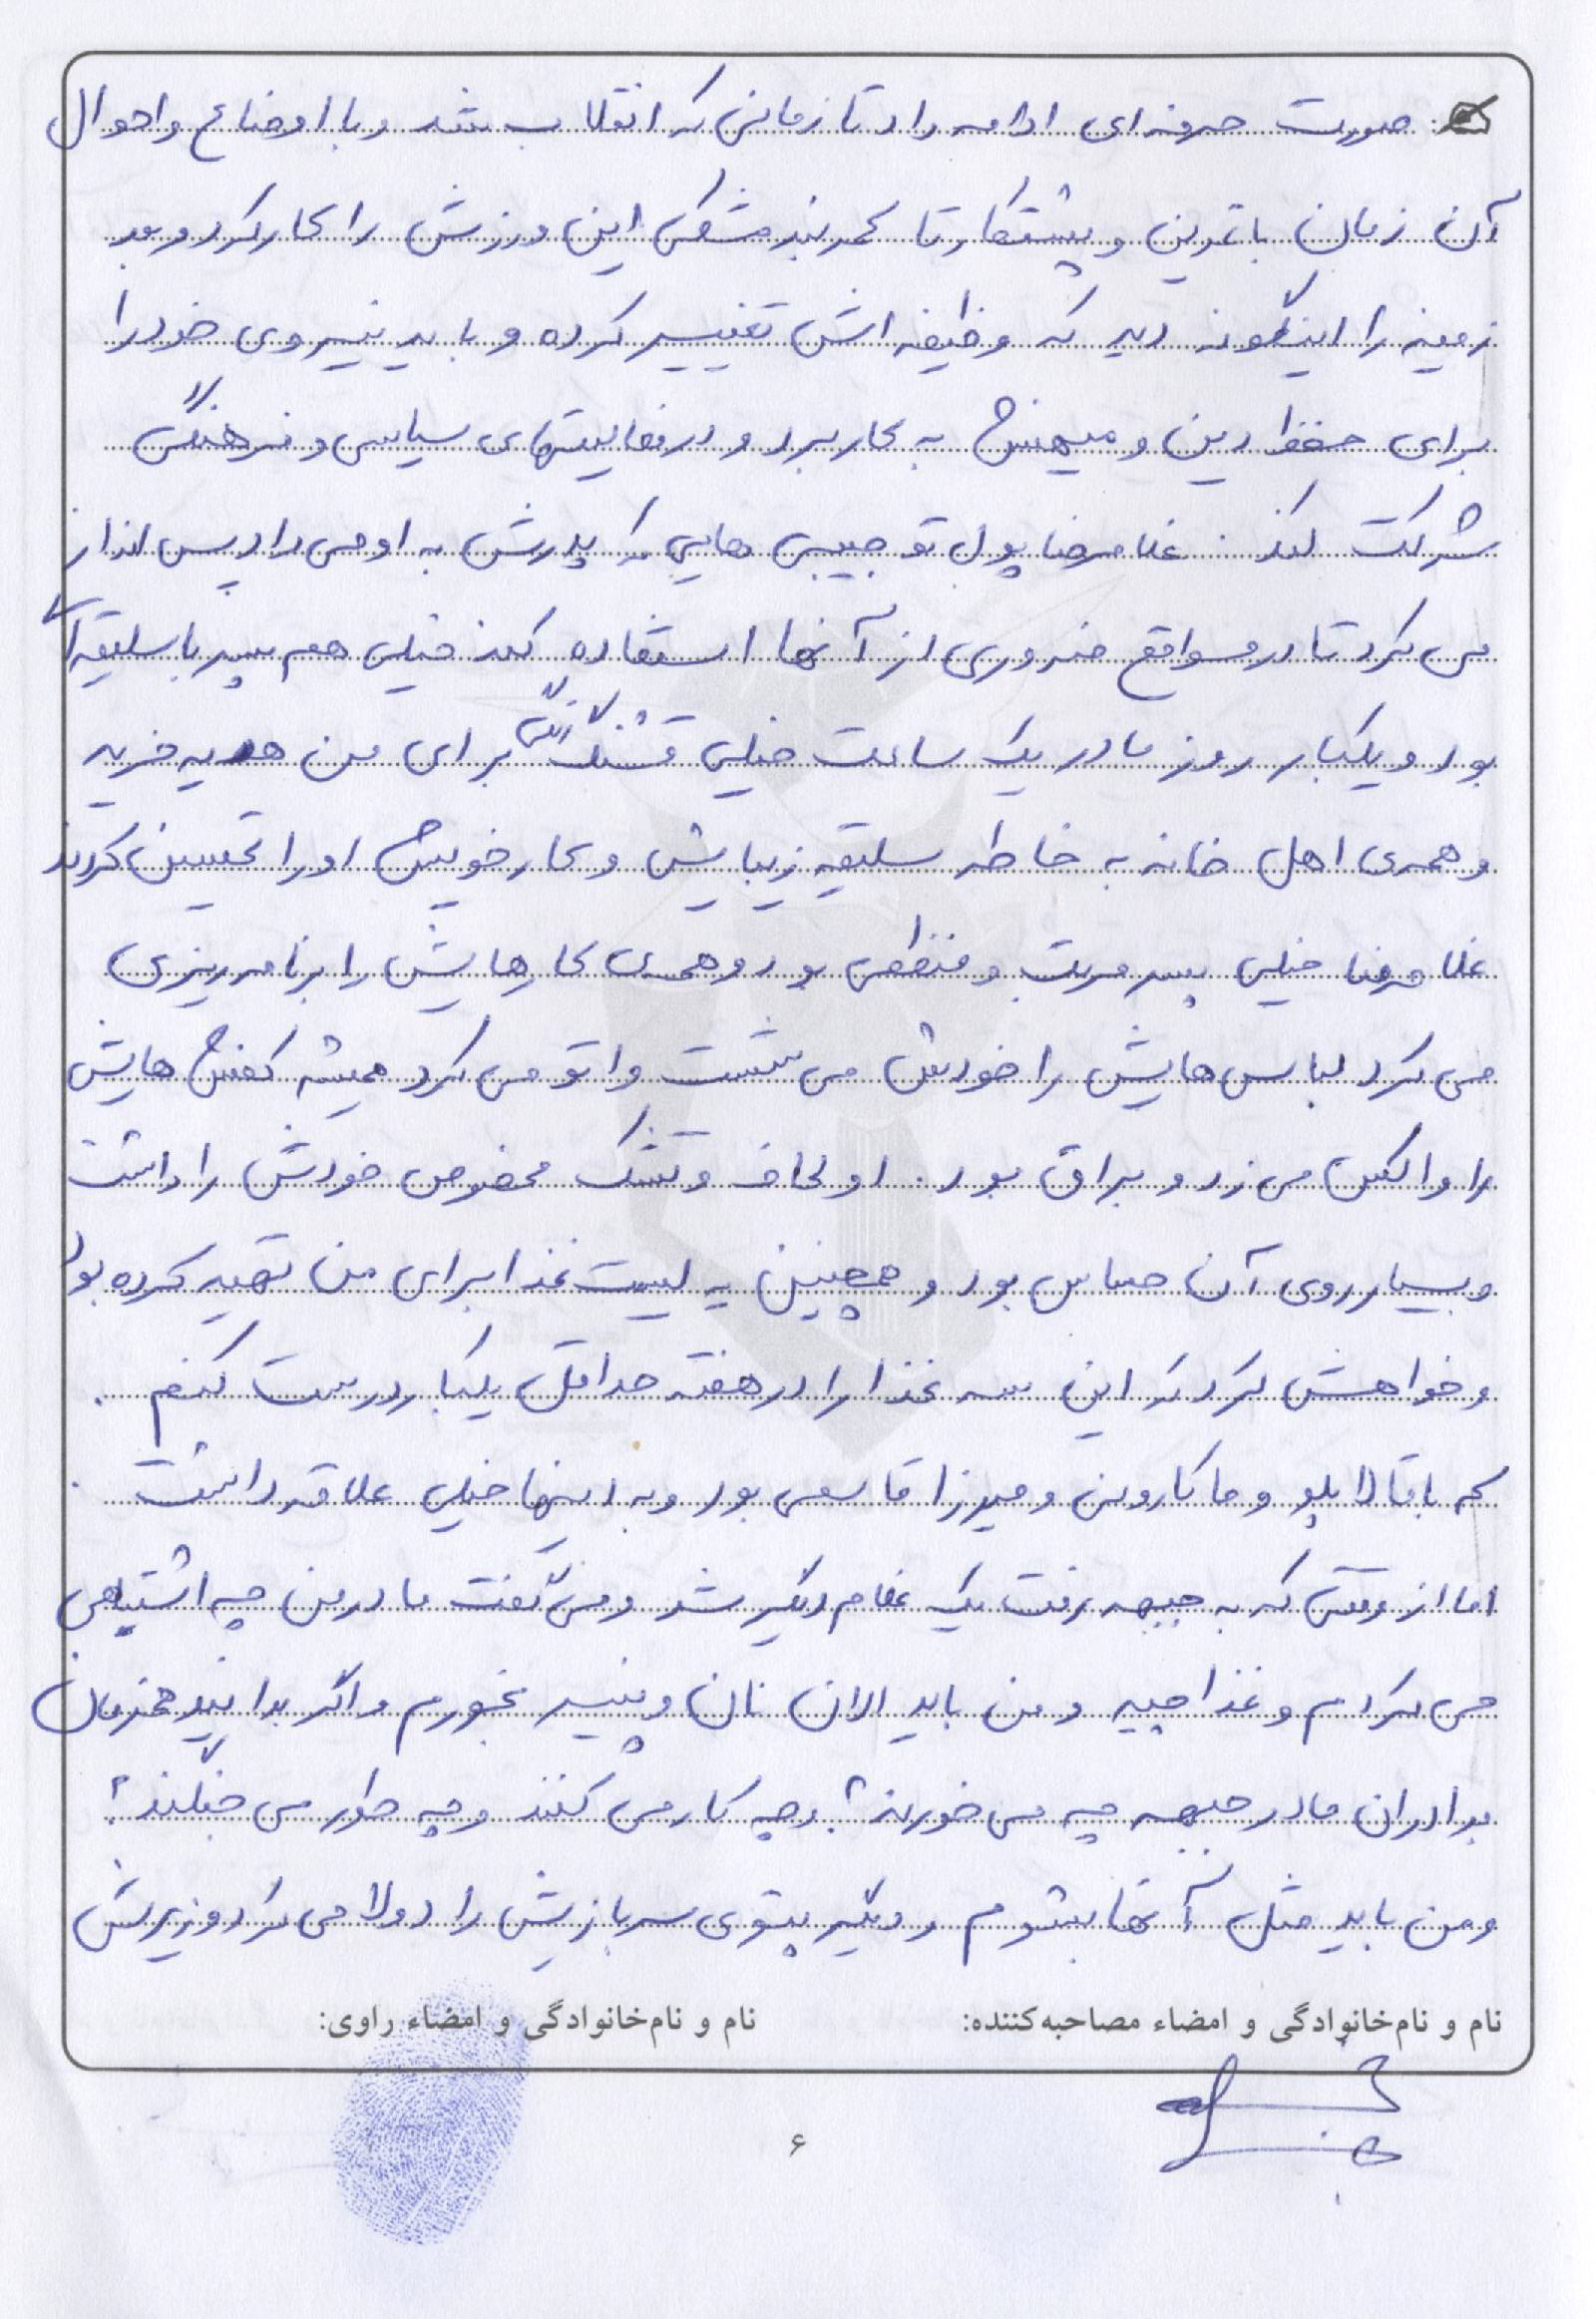 صورت حرفه‌ای ادامه داد تا زمانی که انقلاب شد و با اوضاع و احوال
آن زمان با تمرین و پشتکار تا کمربند مشکی این ورزش را کار کرد و بعد
زمینه را اینگونه دید که وظیفه اش تغییر کرده و باید نیروی خود را
برای حفظ دین و میهنش به کار ببرد و در فعالیتهای سیاسی و فرهنگی
شرکت کند. غلامرضا پول تو جیبی هایی که پدرش به او می داد پس انداز
می کرد تا در مواقع ضروری از آنها استفاده کند خیلی هم پسر با سلیقه ای
بود و یکبار روز مادر یک ساعت خیلی قشنگ زنگی برای من هدیه خرید
و همه‌ی اهل خانه به خاطر سلیقه زیبایش و کار خوبش او را تحسین کردند
غلامرضا خیلی پسر مرتب و منظمی بود و همه‌ی کارهایش را برنامه ریزی
می کرد لباس هایش را خودش می شست و اتو می کرد همیشه کفش هایش
را واکس می زد و براق بود. او لحاف و تشک مخصوص خودش را داشت
و بسیار روی آن حساس بود و همچنین یه لیست غذا برای من تهیه کرده بود
و خواهش کرد که این سه غذا را در هفته حداقل یکبار درست کنم.
که باقالا پلو و ماکارونی و میرزا قاسمی بود و به اینها خیلی علاقه داشت.
اما از وقتی که به جبهه رفت یک غلام دیگر شد و می گفت مادر من چه اشتباهی
می کردم و غذا چیه و من باید الان نان و پنیر بخورم و اگر بدانید همزمان
برادران ما در جبهه چه می خورند؟ و چه کار می کنند و چه طور می جنگند؟
و من باید مثل آنها بشوم و دیگر پتوی سربازیش را دولا می کرد و زیرش
نام و نام‌خانوادگی و امضاء مصاحبه‌کننده: نام و نام‌خانوادگی و امضاء راوی:
۶